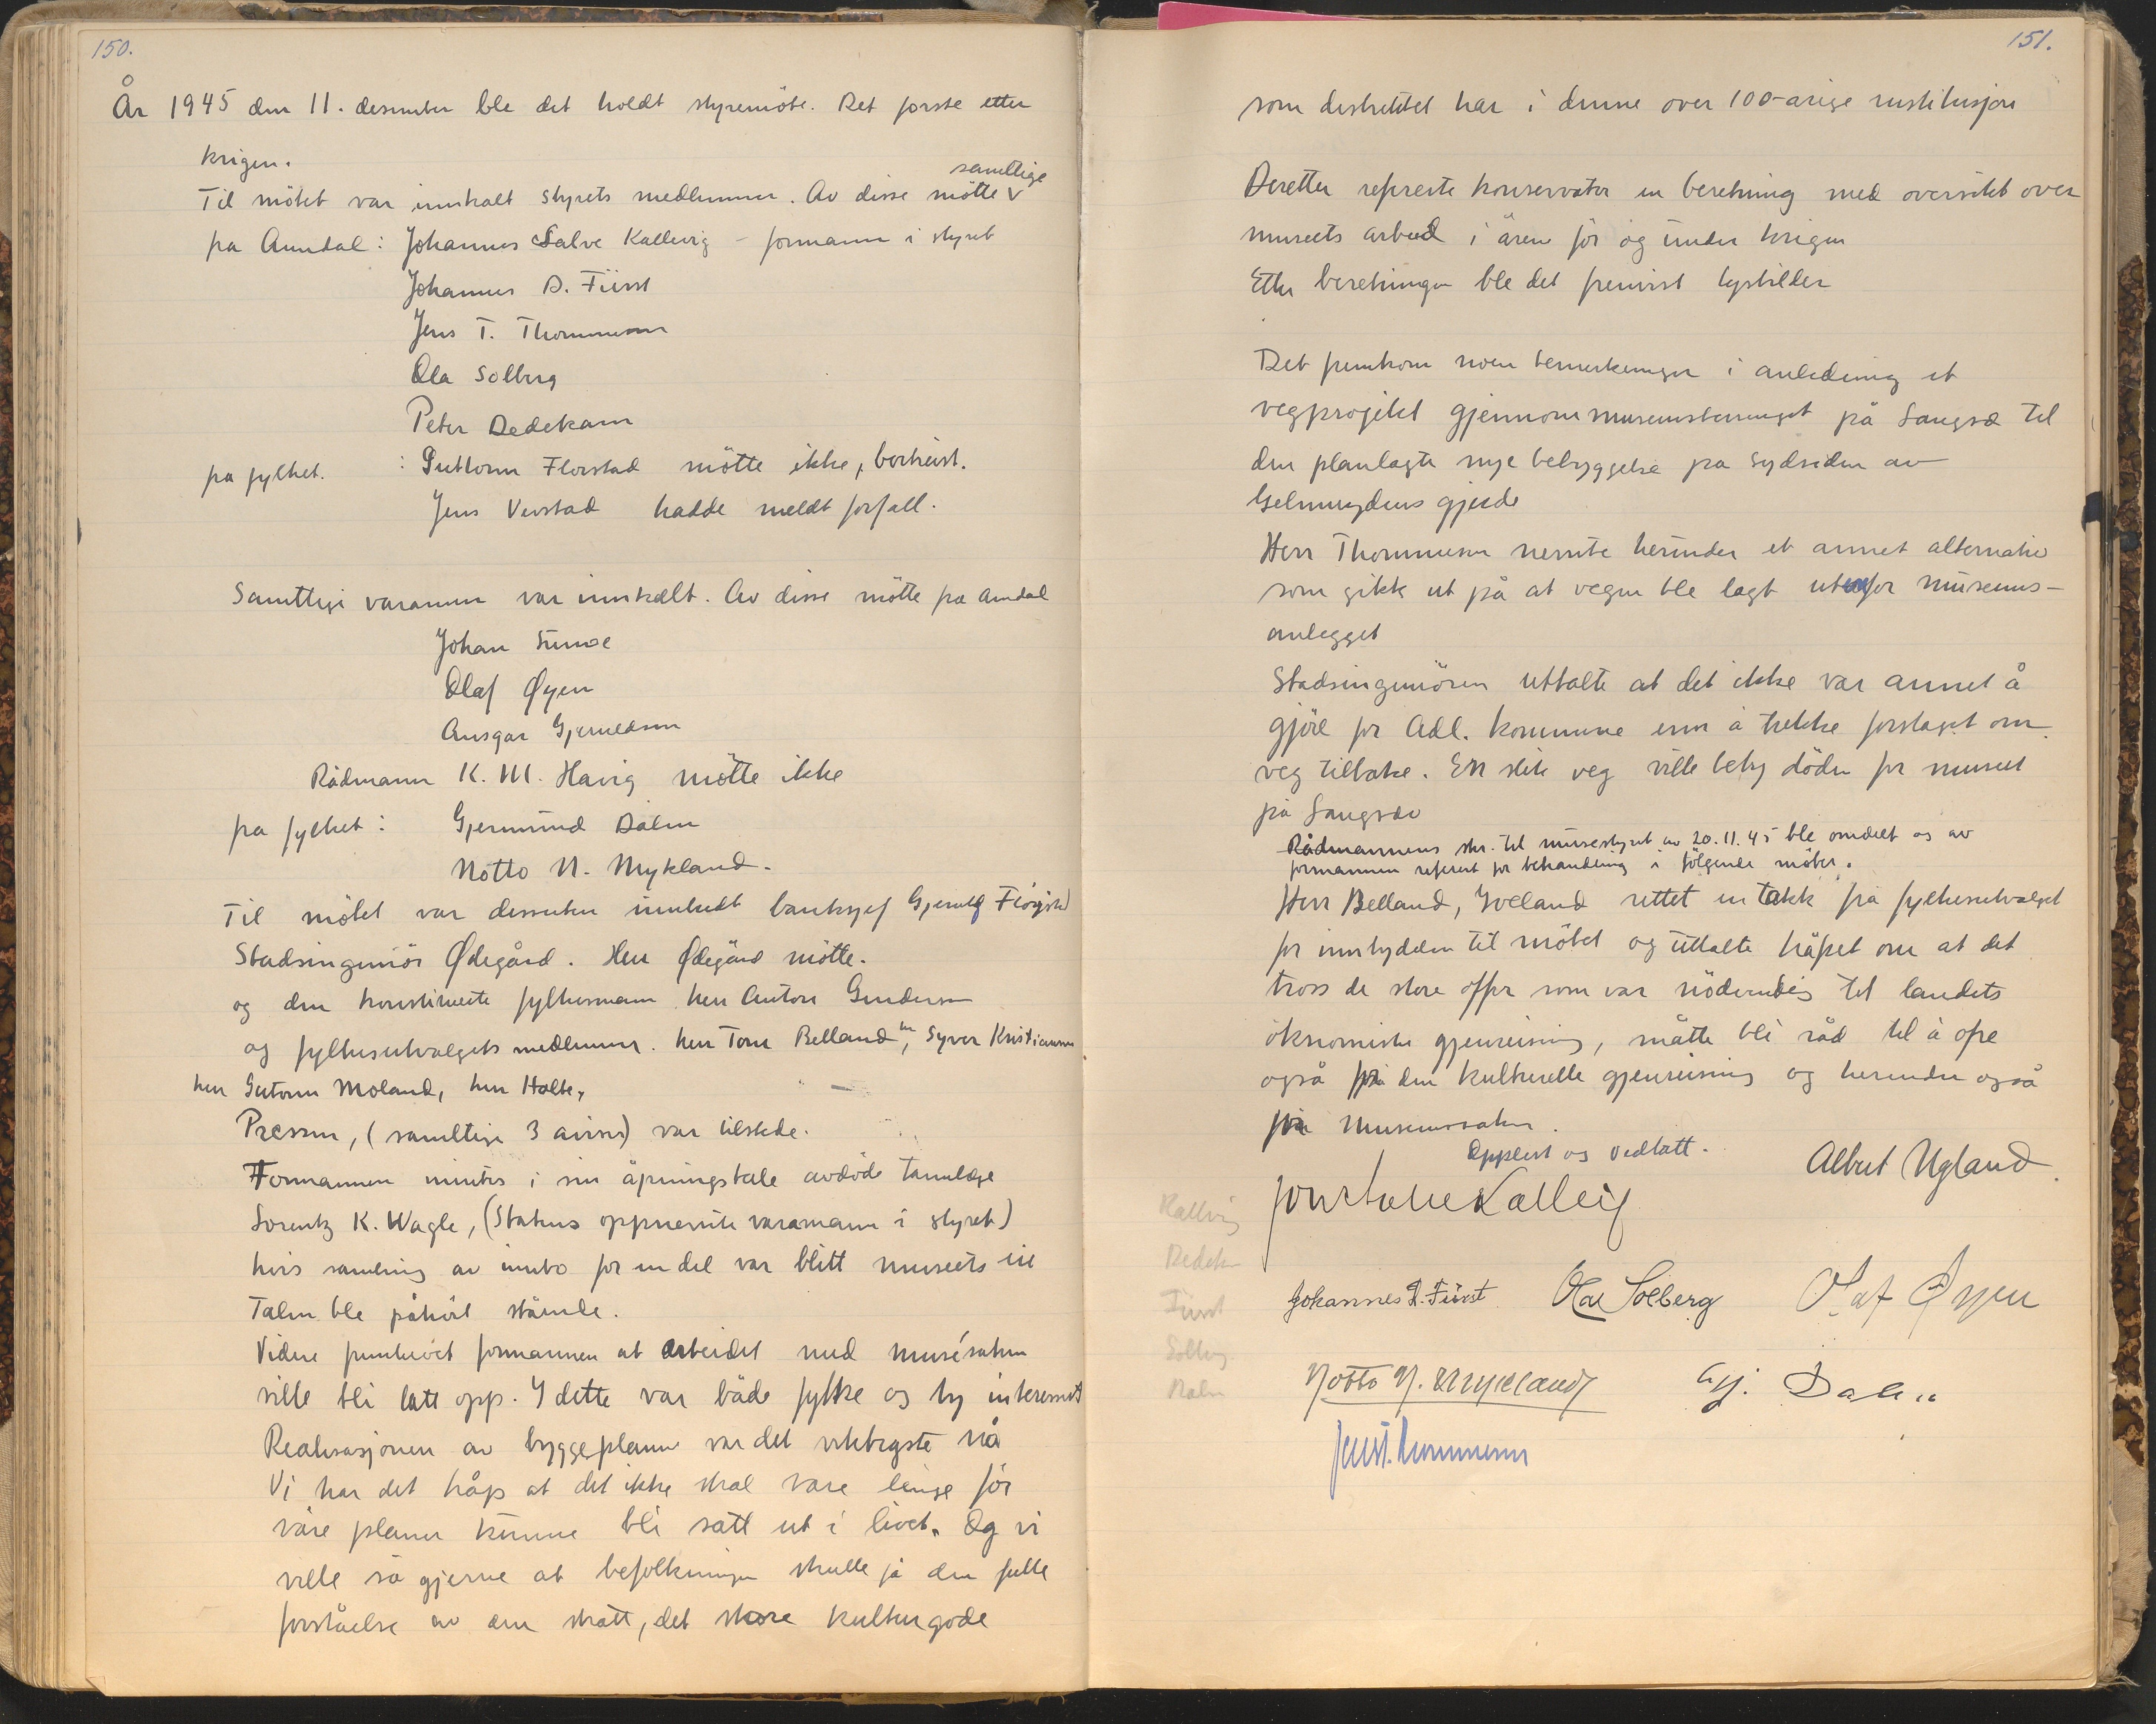 150.
År 1945 den 11. desember ble det holdt styremöte. Det første etter
krigen.
Til mötet var innkalt styrets medlemmer. Av disse mötte samtlige
fra Arendal: Johannes Salve Kallevig – formann i styret
Johannes D. Fürst
Jens T. Thommesen
Ola Solberg
Peter Dedekam
fra fylket. : Guttorm Florstad mötte ikke, bortreist.
Jens Vevstad hadde meldt forfall.
Samtlige varamenn var innkalt. Av disse mötte fra Arendal
Johan Sunde
Olaf Øyen
Ansgar Gjeruldsen
Rådmann K. M. Havig mötte ikke
fra fylket: Gjermund Dalen
Notto N. Mykland.
Til mötet var dessuten innbudt banksjef Gjerulf Fløystad
Stadsingeniör Ødegård. Herr Ødegård mötte.
og den konstituerte fylkesmann herr Anton Gundersen
og fylkesutvalgets medlemmer. herr Tom Belland, hr Syver Kristiansen
herr Gutorm Moland, herr Holte,
Pressen, (samtlige 3 aviser) var tilstede.
Formannen mintes i sin åpningstale avdöde tannlæge
Lorentz K. Wagle, (Statens oppnevnte varamann i styret)
hvis samling av innbo for en del var blitt museets eie
Talen ble påhört stående.
Videre fremhevet formannen at arbeidet med musésaken
ville bli tatt opp. I dette var både fylke og by interessert
Realisasjonen av byggeplanene var det viktigste nå
Vi har det håp at det ikke skal vare lenge för
våre planer kunne bli satt ut i livet. Og vi
ville så gjerne at befolkningen skulle få den fulle
forståelse av den skatt, det store kulturgode
151.
som destriktet har i denne over 100-årige institusjon
Deretter refererte konservator en beretning med oversikt over
museets arbeid i årene för og under krigen
Etter beretningen ble det fremvist lysbilder
Det fremkom noen bemerkninger i anledning et
vegprosjekt gjennom museumsterrenget på Langsæ til
den planlagte nye bebyggelse på sydsiden av
gjerde
Herr Thommesen nevnte herunder et annet alternativ
som gikk ut på at vegen ble lagt utenfor museums-
anlegget
Stadsingeniören uttalte at det ikke var annet å
gjöre for Adl. kommune enn å trekke forslaget om
veg tilbake. En slik veg ville bety döden for museet
på Langsæ
Rådmannens skr. til musestyret av 20.11.45 ble omdelt og av
formannen referert for behandling i fölgende möter.
Herr Belland, Iveland rettet en takk fra fylkesutvalget
for innbydelsen til mötet og uttalte håpet om at det
tross de store offer som var nödvendig til landets
ökonomiske gjenreisning, måtte bli råd til å ofre
også på den kulturelle gjenreisning og herunder også
på museumssaken.
Opplest og vedtatt.
Albert Ugland
Joh. Salve Kallevig
Kallevig
Dedekam
Fürst
Solberg
Dalen
Johannes D. Fürst Ola Solberg Olaf Øyen
Notto N. Mykland Gj. Dalen
Jens T. Thommesen